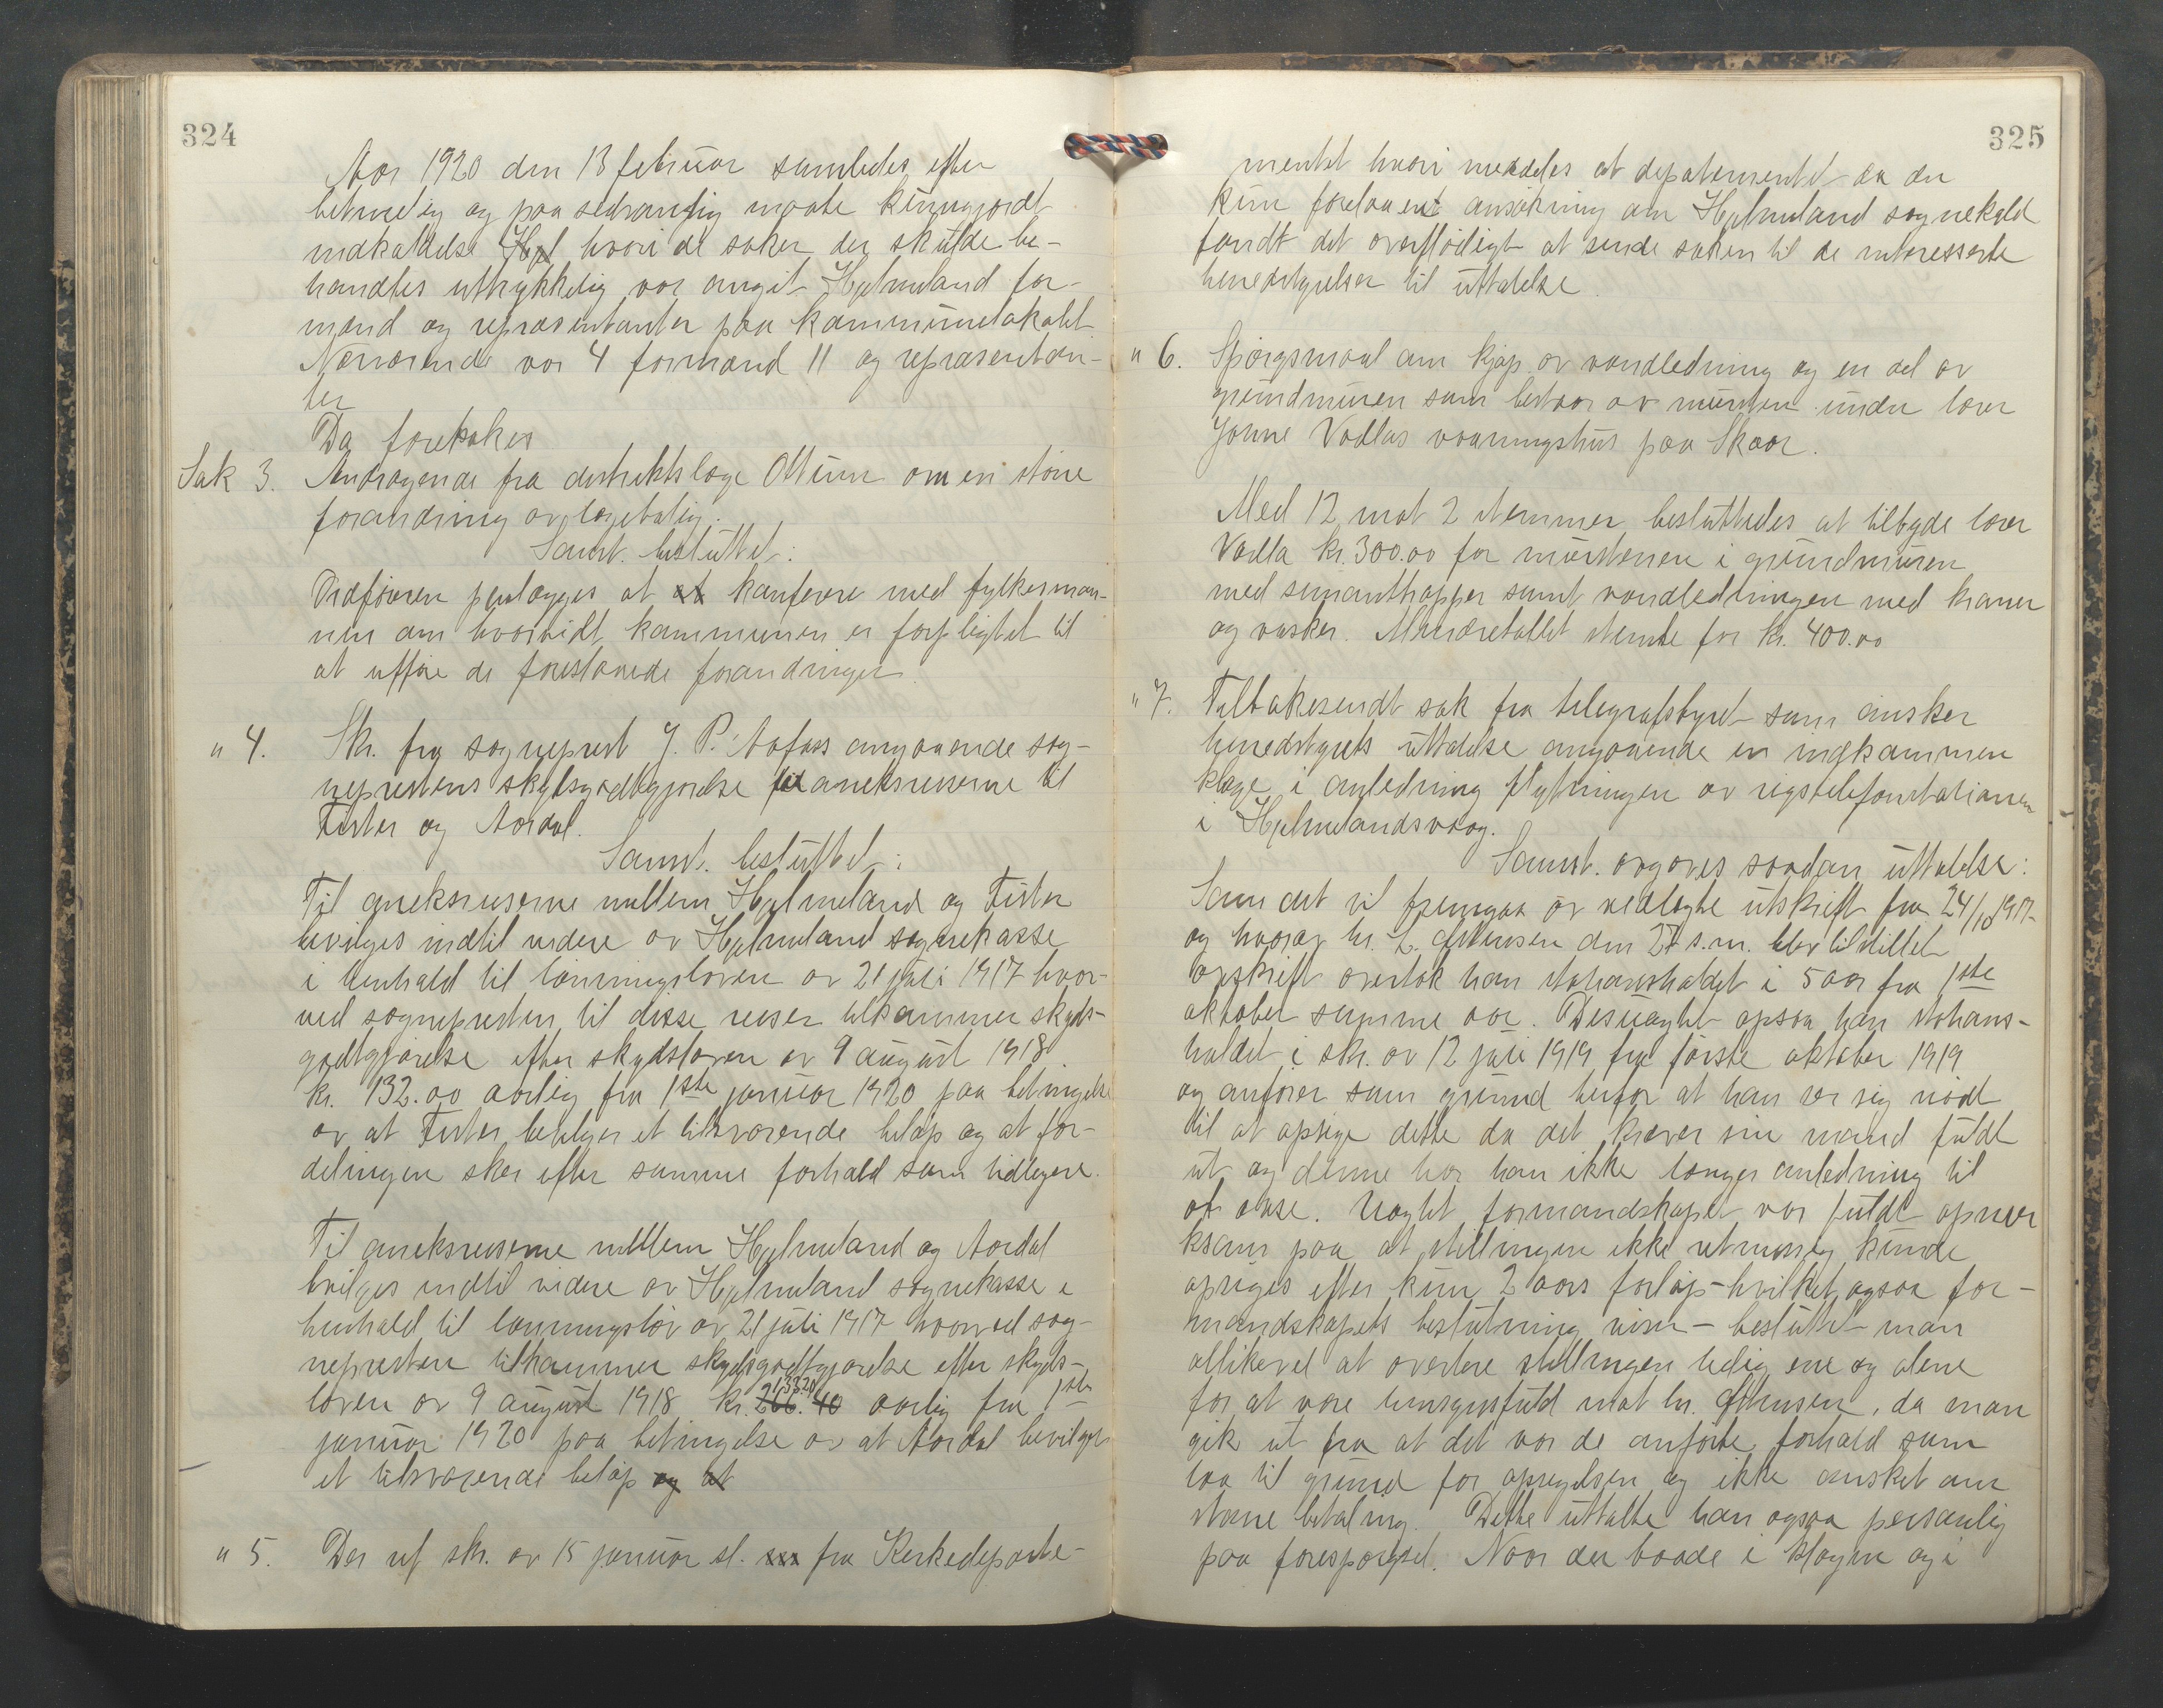 324
Aar 1920 den 13 februar samledes efter
betimelig og paa sedvanlig maate kunngjordt
indkaldelse Hjel hvori de saker der skulde be-
handles uttrykkelig var angit Hjelmeland for-
mænd og repræsentanter paa kommunelokalet
Nærværende var 4 formænd 11 og repræsentan-
ter
Da forekokes
Sak 3. Andragende fra distriktslæge Ottum om en større
forandring av lægebolig.
Samst. besluttet:
Ordføreren pælægges at at konferere med fylkesman-
nen om hvorvidt kommunen er forpligtet til
at utføre de foreslaaede forandringer.
" 4. Skr. fra sogneprest J. P. Aafass angaaende sog-
neprestens skydsgodtgjørelse til aneksreiserne til
Fister og Aardal.
Samst. besluttet:
Til aneksreiserne mellem Hjelmeland og Fister
bevilges indtil videre av Hjelmeland sognekasse
i henhold til lønningsloven av 21 juli 1917 hvor-
ved sognepresten til disse reiser tilkommer skyds-
godtgjørelse efter skydsloven av 9 august 1918
kr. 132.00 aarlig fra 1ste januar 1920 paa betingelse
av at Fister bevilger et tilsvarende beløp og at for-
delingen sker efter samme forhold som tidligere.
Til aneksreiserne mellem Hjelmeland og Aardal
bvilges indtil videre av Hjelmeland sognekasse i
henhold til lønningslov av 21 juli 1917 hvorved sog-
nepresten tilkommer skydsgodtgjørelse efter skyds-
loven av 9 august 1918 kr. 266.40 133.20 aarlig fra 1ste
januar 1920 paa betingelse av at Aardal bevilger
et tilsvarende beløp og at
" 5. Der ref skr. av 15 januar sl. fra Kirkedeparte-
325
mentet hvori meddeles at depatementet da der
kun forelaa ent ansøkning om Hjelmeland sognekald
fandt det overflødigt at sende saken til de interesserte
herredstyrelser til uttalelse.
" 6. Spørgsmaal om kjøp av vandledning og en del av
grundmuren som bestaar av mursten under lærer
Jonne Vadlas vaaningshus paa Skaar.
Med 12 mot 2 stemmer besluttedes at tilbyde lærer
Vadla kr. 300.00 for murstenene i grundmuren
med sementtrapper samt vandledningen med kraner
og vasker. Mindretallet stemte for kr. 400.00
" 7. Tilbakesendt sak fra telegrafstyret som ønsker
herredstyrets uttalelse angaaende en indkommen
klage i anledning flytningen av rigstelefonstationen
i Hjelmelandsvaag.
Samst. avgaves saadan uttalelse:
Som det vil fremgaa av vedlagte utskrift fra 24/10 1917
og hvorav hr. L. Osthusen den 27 s.m. blev tilstillet
avskrift overtok han stationsholdet i 5 aar fra 1ste
oktober samme aar. Desuagtet opsaa han stations-
holdet i skr. av 12 juli 1919 fra første oktober 1919
og anfører som grund herfor at han ser sig nødt
til at opsige dette da det kræver sin mand fuldt
ut og denne har han ikke længer anledning til
at avse. Uagtet formandskapet var fuldt opmer
ksam paa at stillingen ikke retmæssig kunde
opsiges efter kun 2 aars forløp - hvilket ogsaa for-
mandskapets beslutning viser - besluttet man
allikevel at avertere stillingen ledig ene og alene
for at være hensynsfuld mot hr. Osthusen, da man
gik ut fra at det var de anførte forhold som
laa til grund for opsigelsen og ikke ønsket om
større betaling. Dette uttalte han ogsaa personlig
paa forespørgsel. Naar der baade i klagen og i